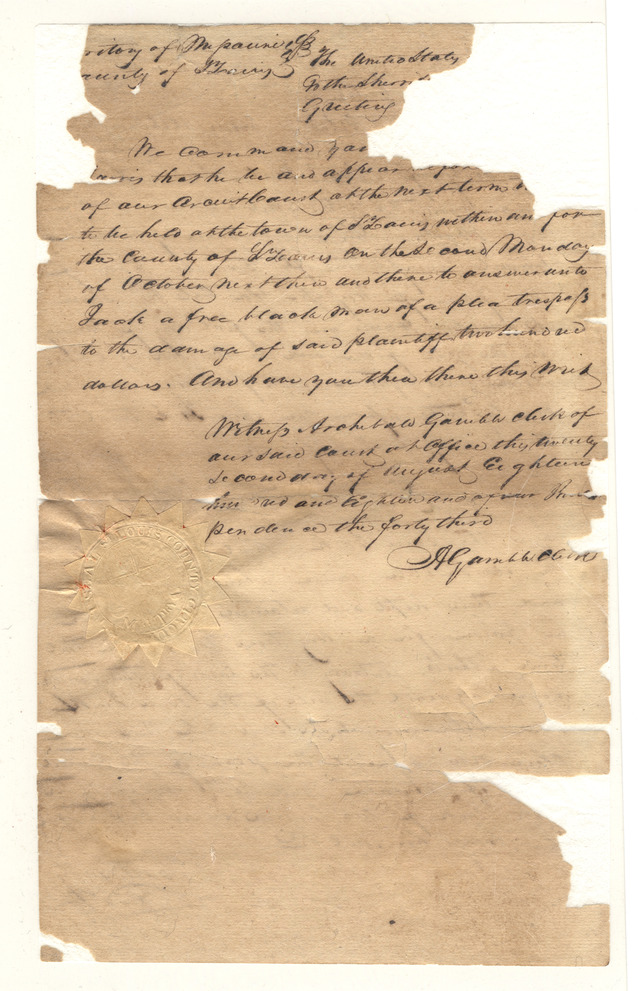 ritory of Missouri Ss
ounty of St Louis The United States
To the Sheriff
Greeting
We command you
that he be and appear
of our Circuit Court at the next term
to be held at the town of St Louis within an for
the County of St Louis on the Second Monday
of October next then and there to answer unto
Jack a free black man of a plea trespass
to the damage of said plaintiff two hundred
dollars. And have you then there this writ
Witness Archibald Gamble Clerk of
our said Court at Office this twenty
second day of August Eighteen
hun red and Eighteen and of our
pendence the forty third
A Gamble Clerk
ST LOUIS COUNTY